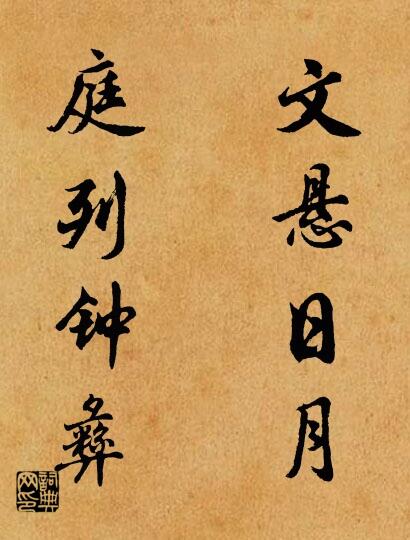 文悬日月
庭列钟彝
词典网印